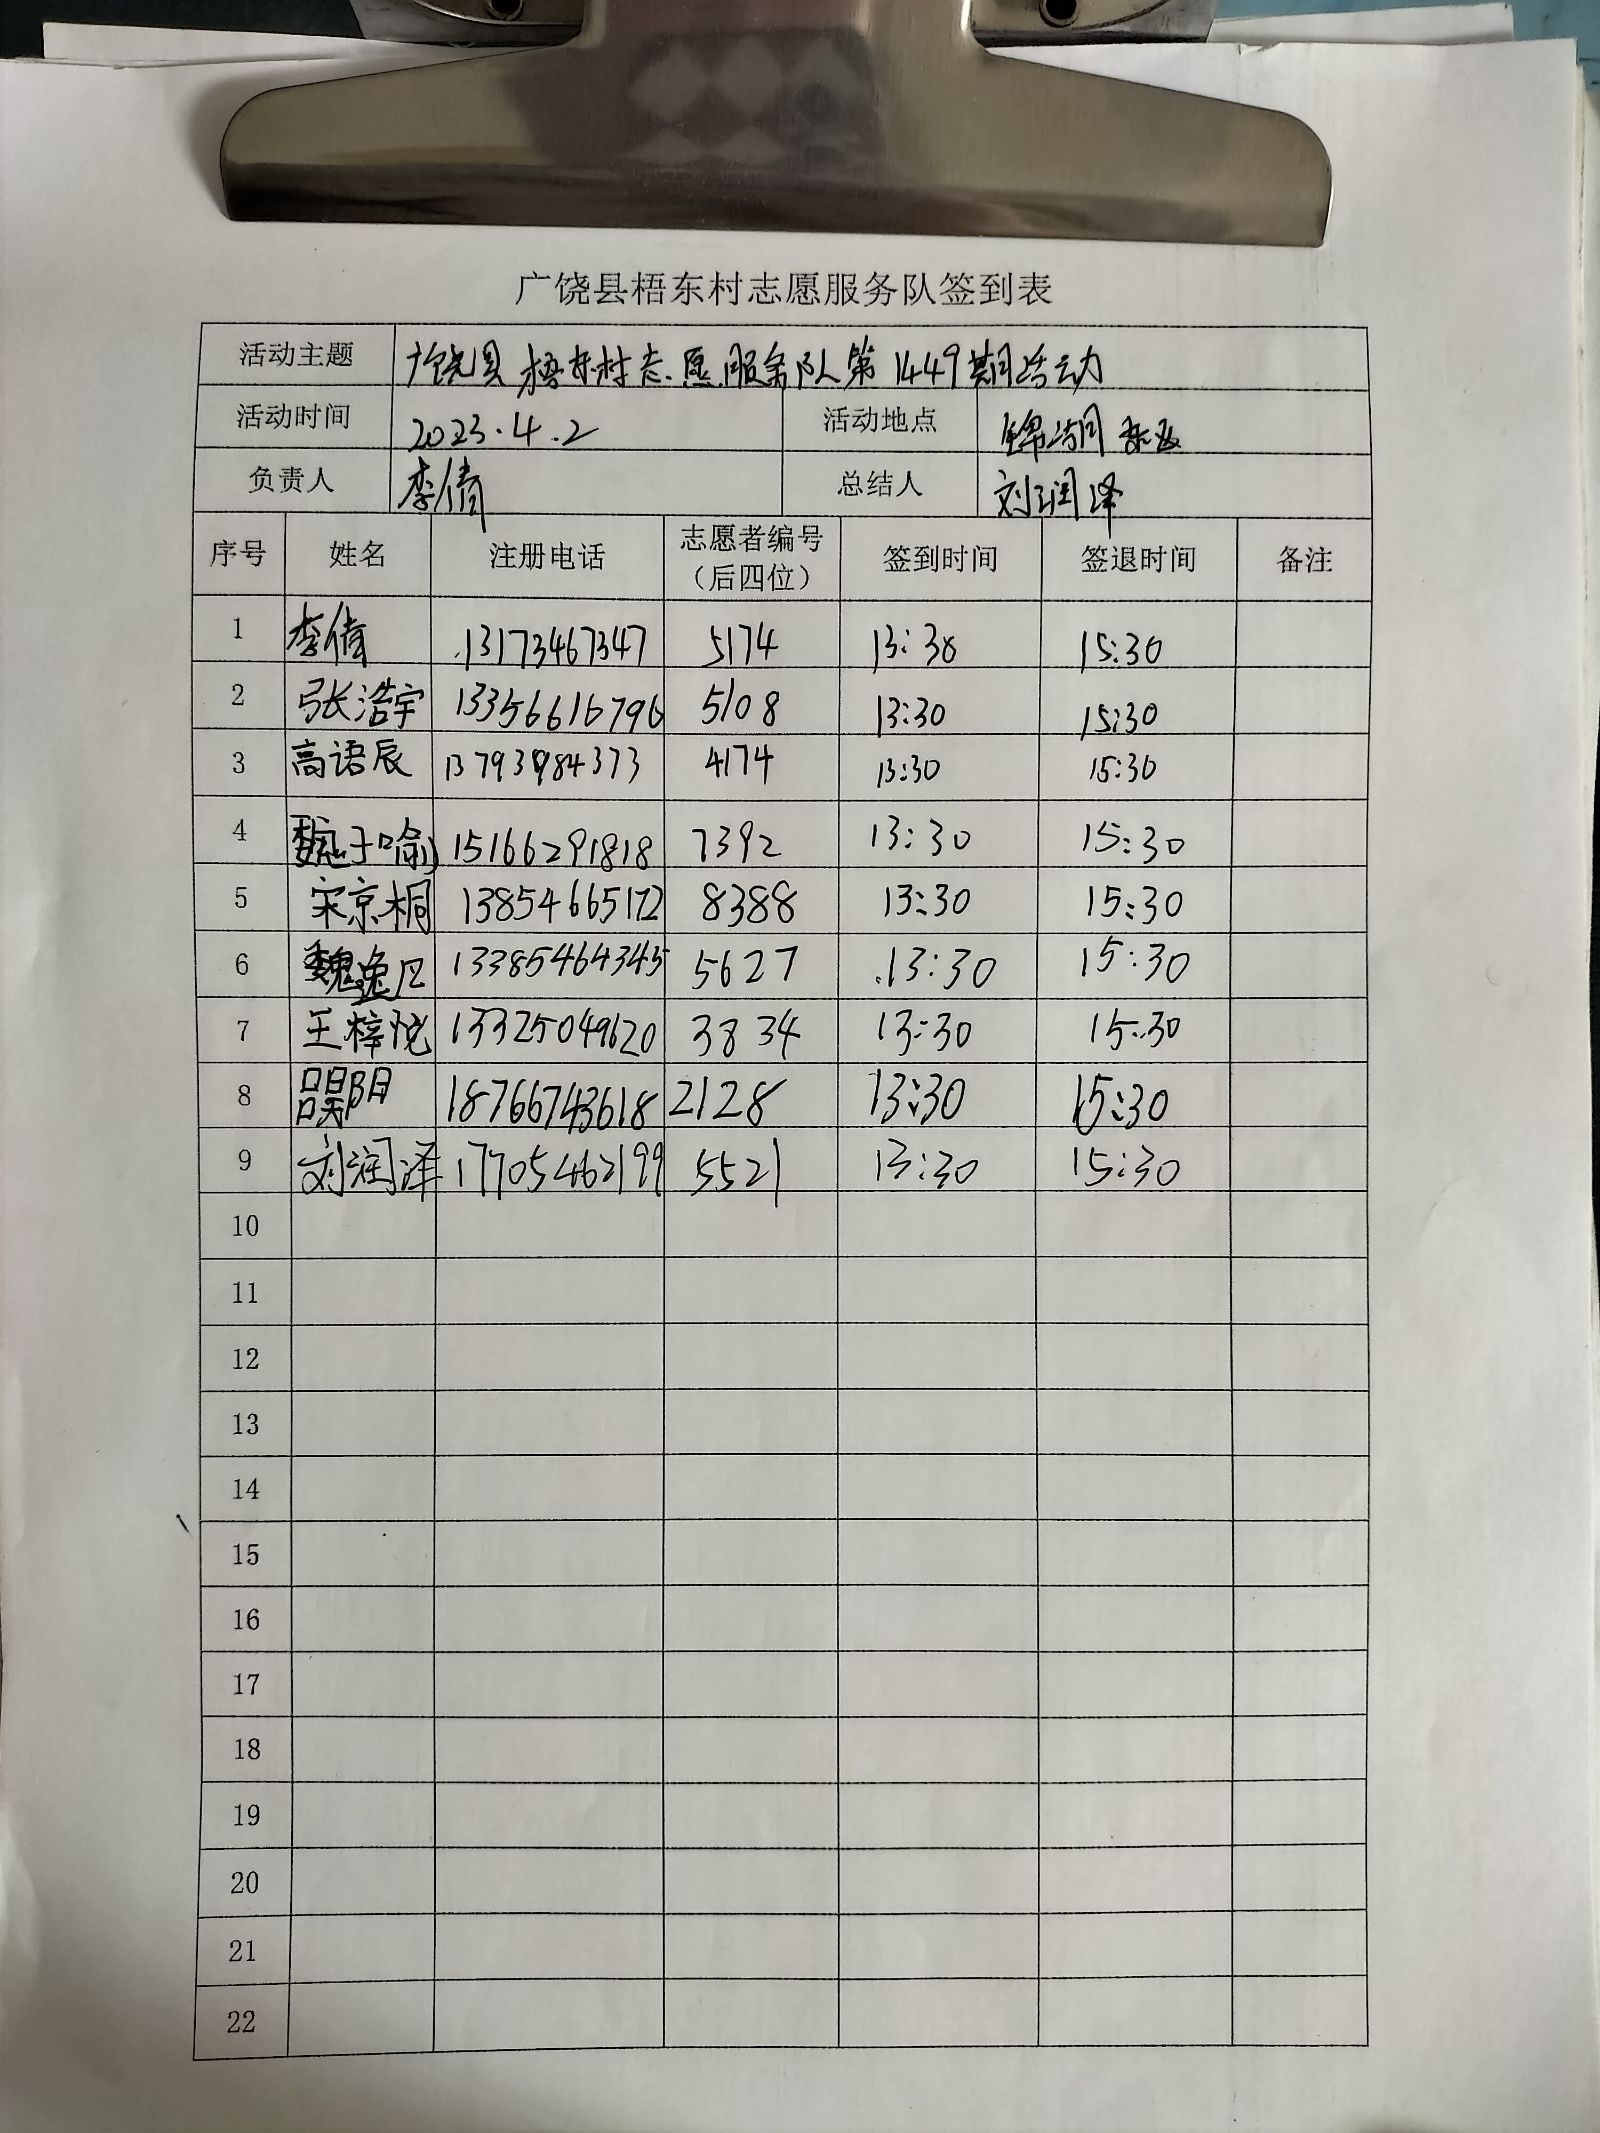 广饶县梧东村志愿服务队签到表
活动主题 广饶县梧东村志愿服务队第1449期活动
活动时间 2023.4.2 活动地点 锦湖
负责人 李倩 总结人 刘润泽
序号 姓名 注册电话 志愿者编号（后四位） 签到时间 签退时间 备注
1 李倩 13173467347 5174 13:30 15:30
2 张浩宇 13356616796 5108 13:30 15:30
3 高语辰 13793984373 4174 13:30 15:30
4 魏于喻 15166291818 7392 13:30 15:30
5 宋京桐 13854665172 8388 13:30 15:30
6 魏逸凡 13385464345 5627 13:30 15:30
7 王梓悦 13325049620 3834 13:30 15:30
8 吕昊阳 18766743618 2128 13:30 15:30
9 刘润泽 17705462199 5521 13:30 15:30
10
11
12
13
14
15
16
17
18
19
20
21
22